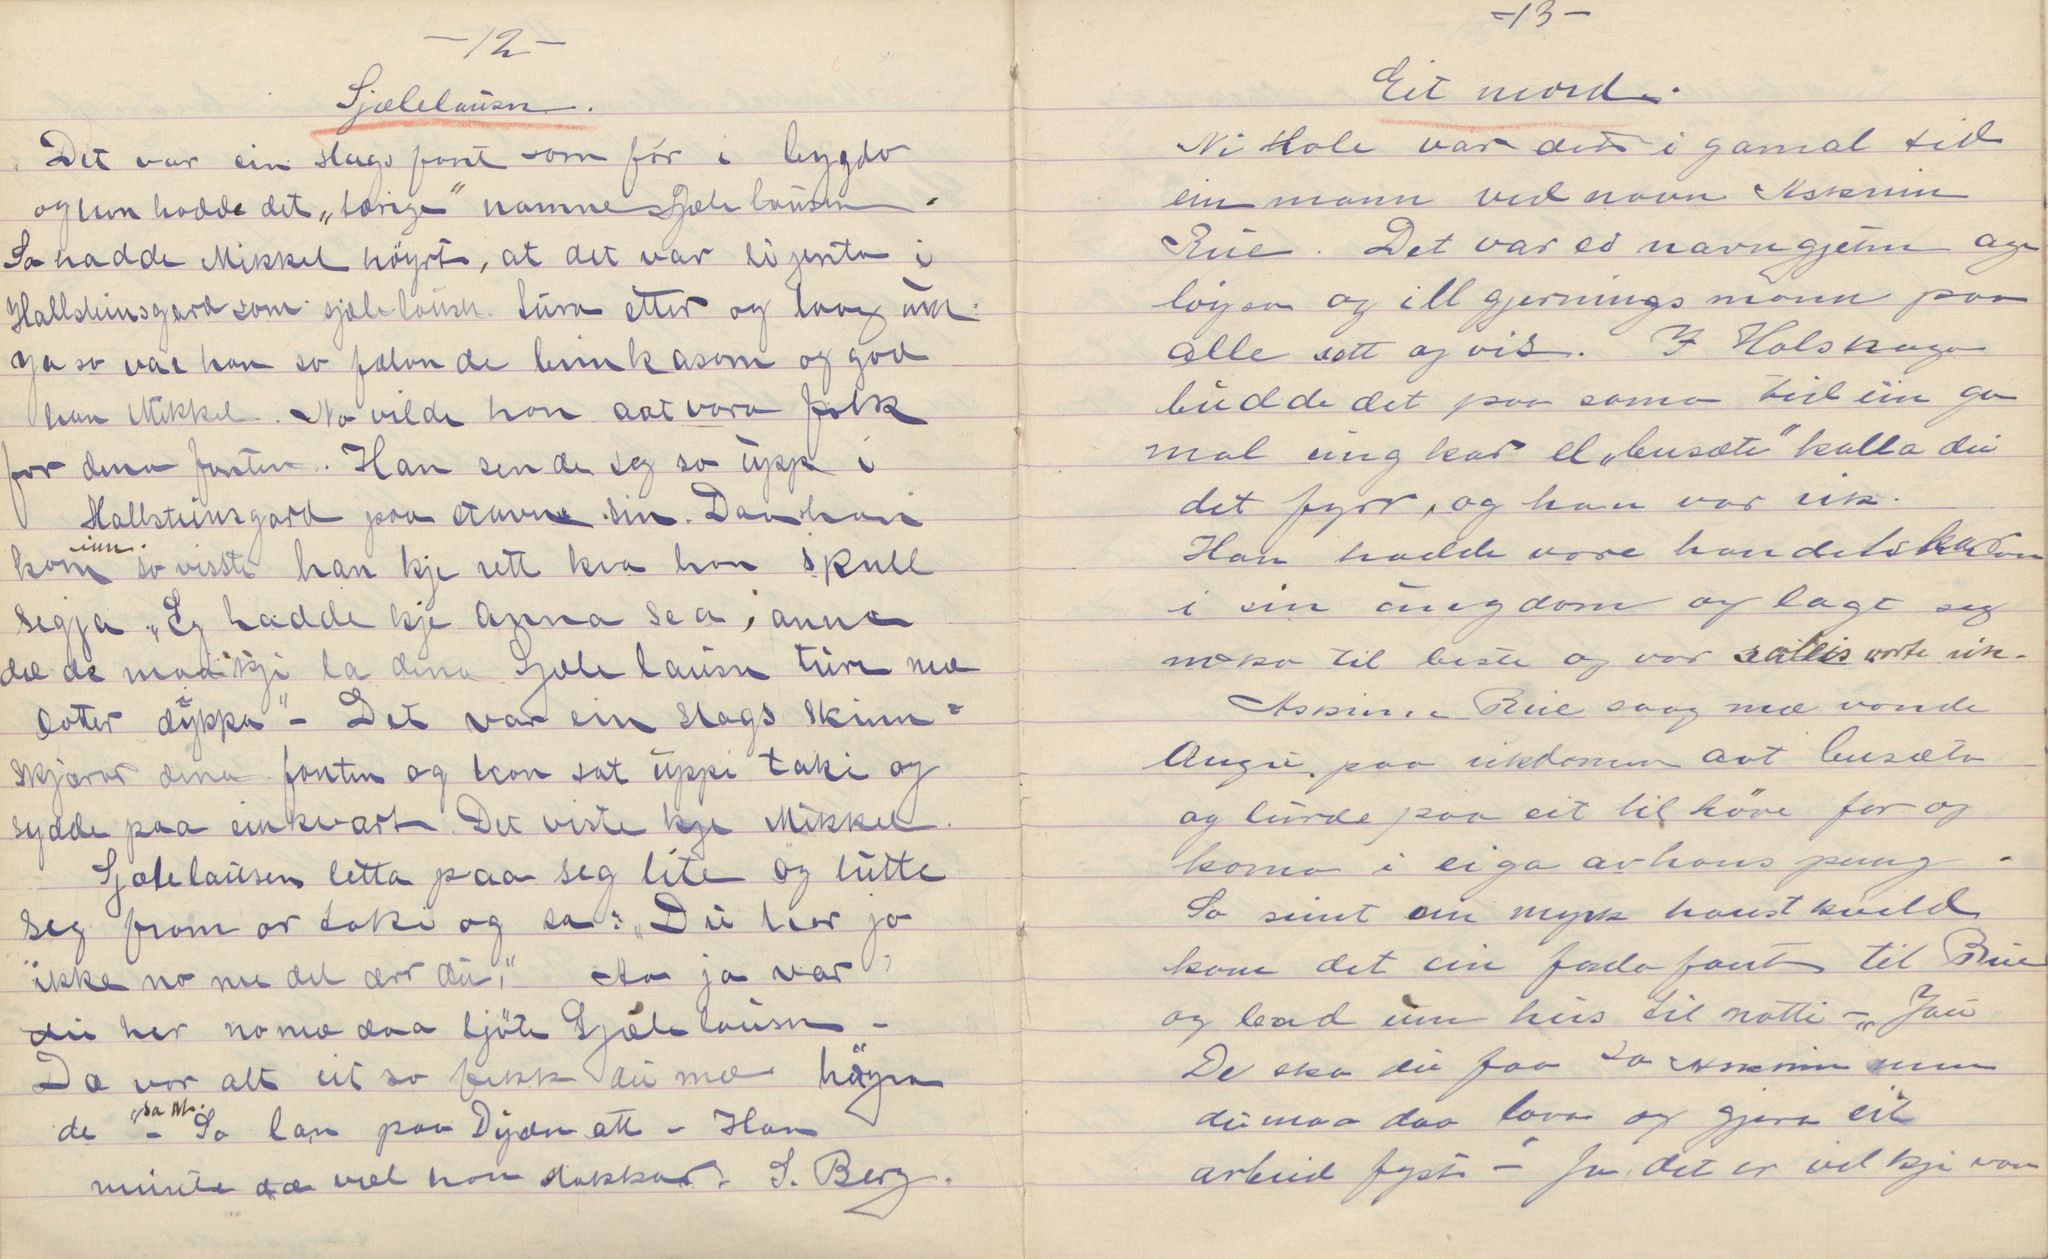 -12-
Sjælelausn.
Det var ein slags fant som fór i bygdo
og han hadde det „lærige" namne Sjælelausn.
So hadde Mikkel høyrt, at det var ei jenta i
Hallsteinsgard som sjælelausn lura etter og laag um.
Ja so var han so fælande leinkasom og god
han Mikkel. No vilde han aatvara folk
for dena fanten. Han sende seg so upp i
Hallsteinsgard paa stavne sin. Daa han
kom inn. so visste han kje rett kva han skull
segja „Eg hadde kje anna se a, anna
dæ de maa kji la dena Sjælelausn ture mæ
dotter dykka" - Det var ein slags skinn-
skjærar dena fanten og han sat uppi taki og
sydde paa einkvart. Det viste kje Mikkel.
Sjælelausen letta paa seg lite og lutte
seg fram or taki og sa: „Du har jo
ikke no me det ærr du," Aa ja var
du her no mæ daa ljote Sjælelausn -
Dæ var alt eit so fekk du mæ høyra
de" - „sa M. So lan paa Dyræn att - Han
meinte dæ væl han stakkar. S. Berg.
-13-
Eit mord.
Ni Hole var det i gamal tid
ein mann ved navn Askrim
Rue. Det var ei navngjetin age
løysa og illgjernings mann paa
alle sett og vis. I Holskaga
budde det paa sama tid ein ga
mal ungkar el „busæte" kalla dei
det fyrr, og han var rik.
Han hadde vore handelskar
i sin ungdom og lagt seg
noko til beste og var vorte rik.
Askrim Rue saag mæ vonde
Augu. paa rikdomen aat busæta
og lurde paa eit tilhøve for og
koma i eiga av hans pung.
So seint ein myrk haustkveld
kom det ein fant til Rue
og bad um hus til notti - „Jau
De ska du faa sa Askrim men
du maa daa lova og gjera eit
arbeid fyst - " Ja det er vel kji van